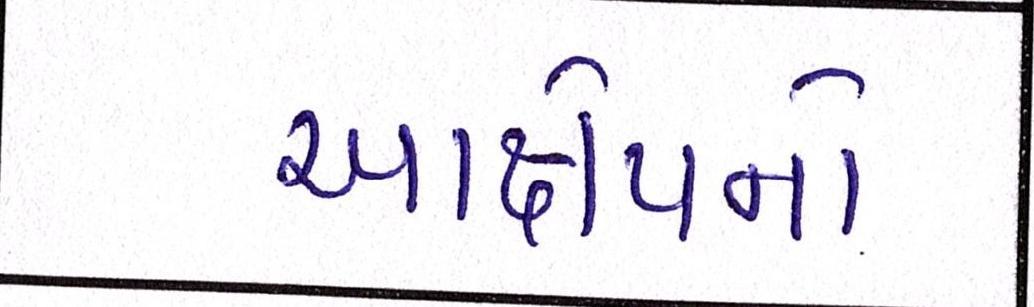 આક્ષેપનો